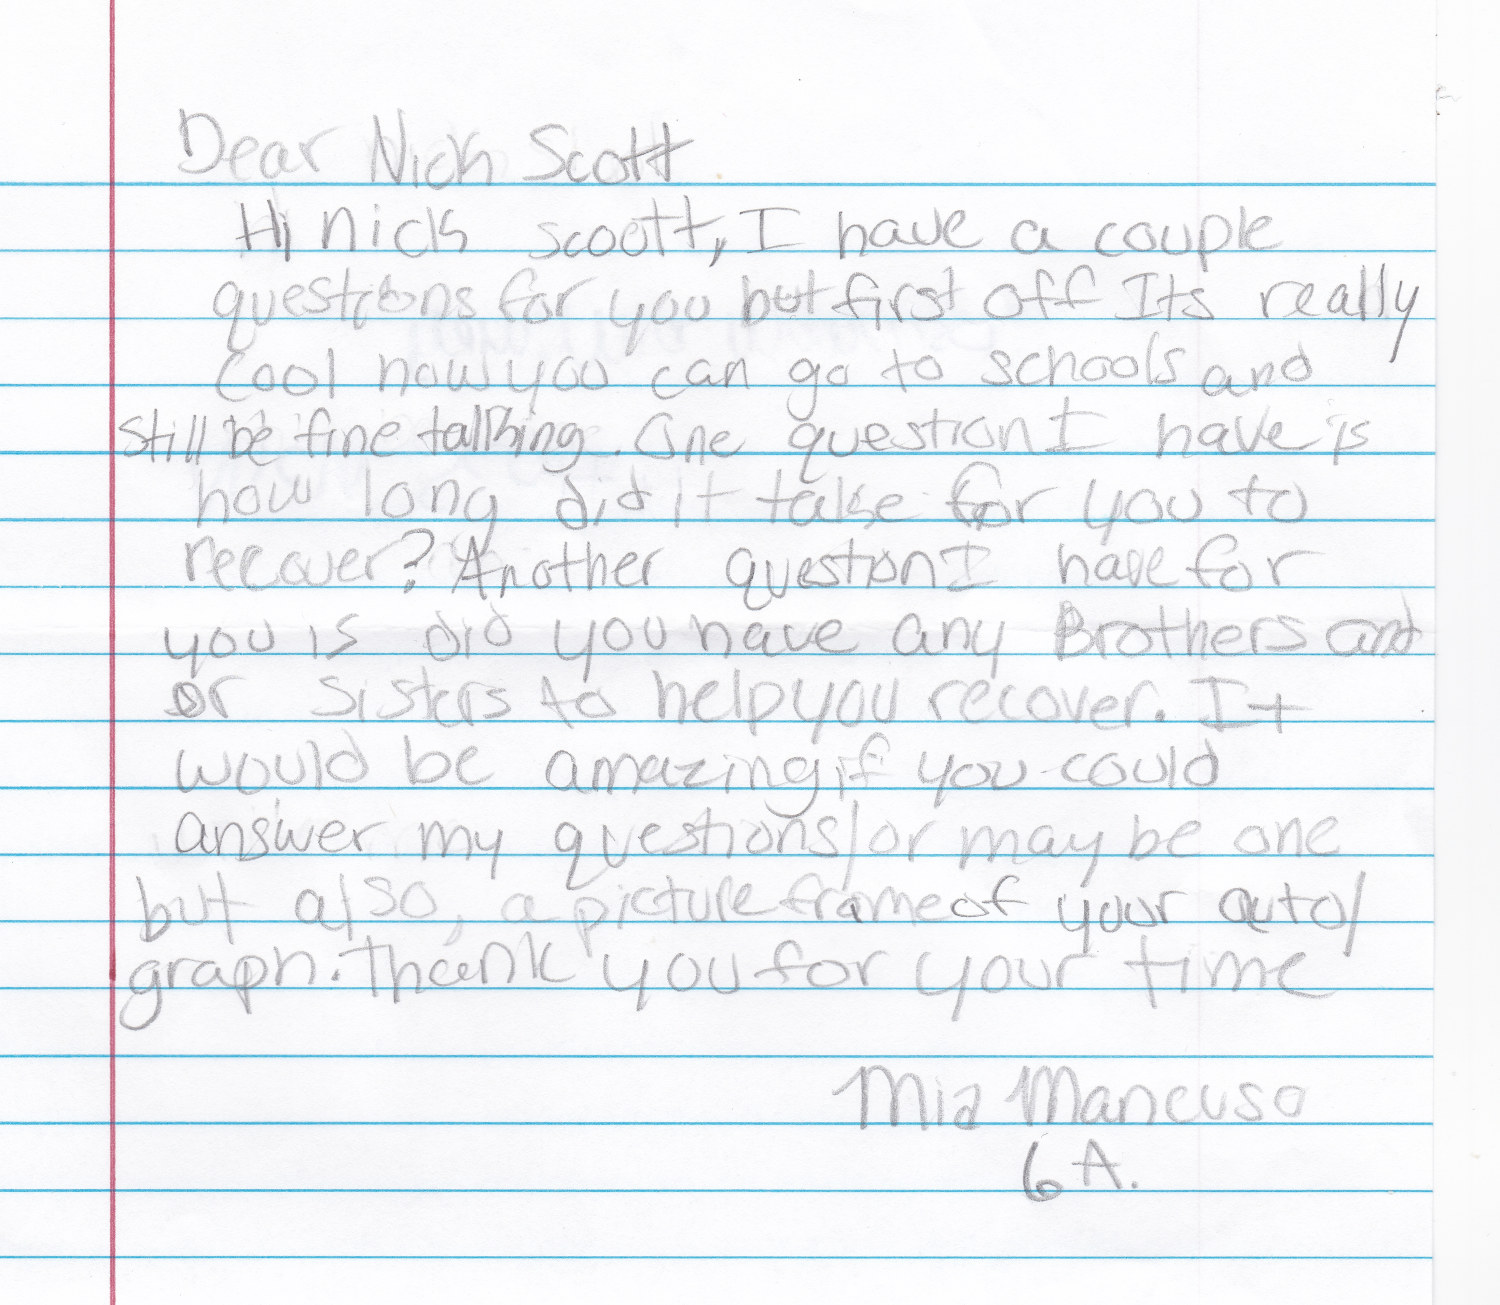 Dear Nick Scott
Hi nick scoott, I have a couple
questions for you but first off Its really
cool how you can go to schools and
still be fine talking. One question I have is
how long did it take for you to
recover? Another question I have for
you is did you have any Brothers and
or sisters to help you recover. It
would be amazing if you could
answer my questions/or may be one
but also, a picture frame of your auto/
graph. Thank you for your time
Mia Mancuso
6A.